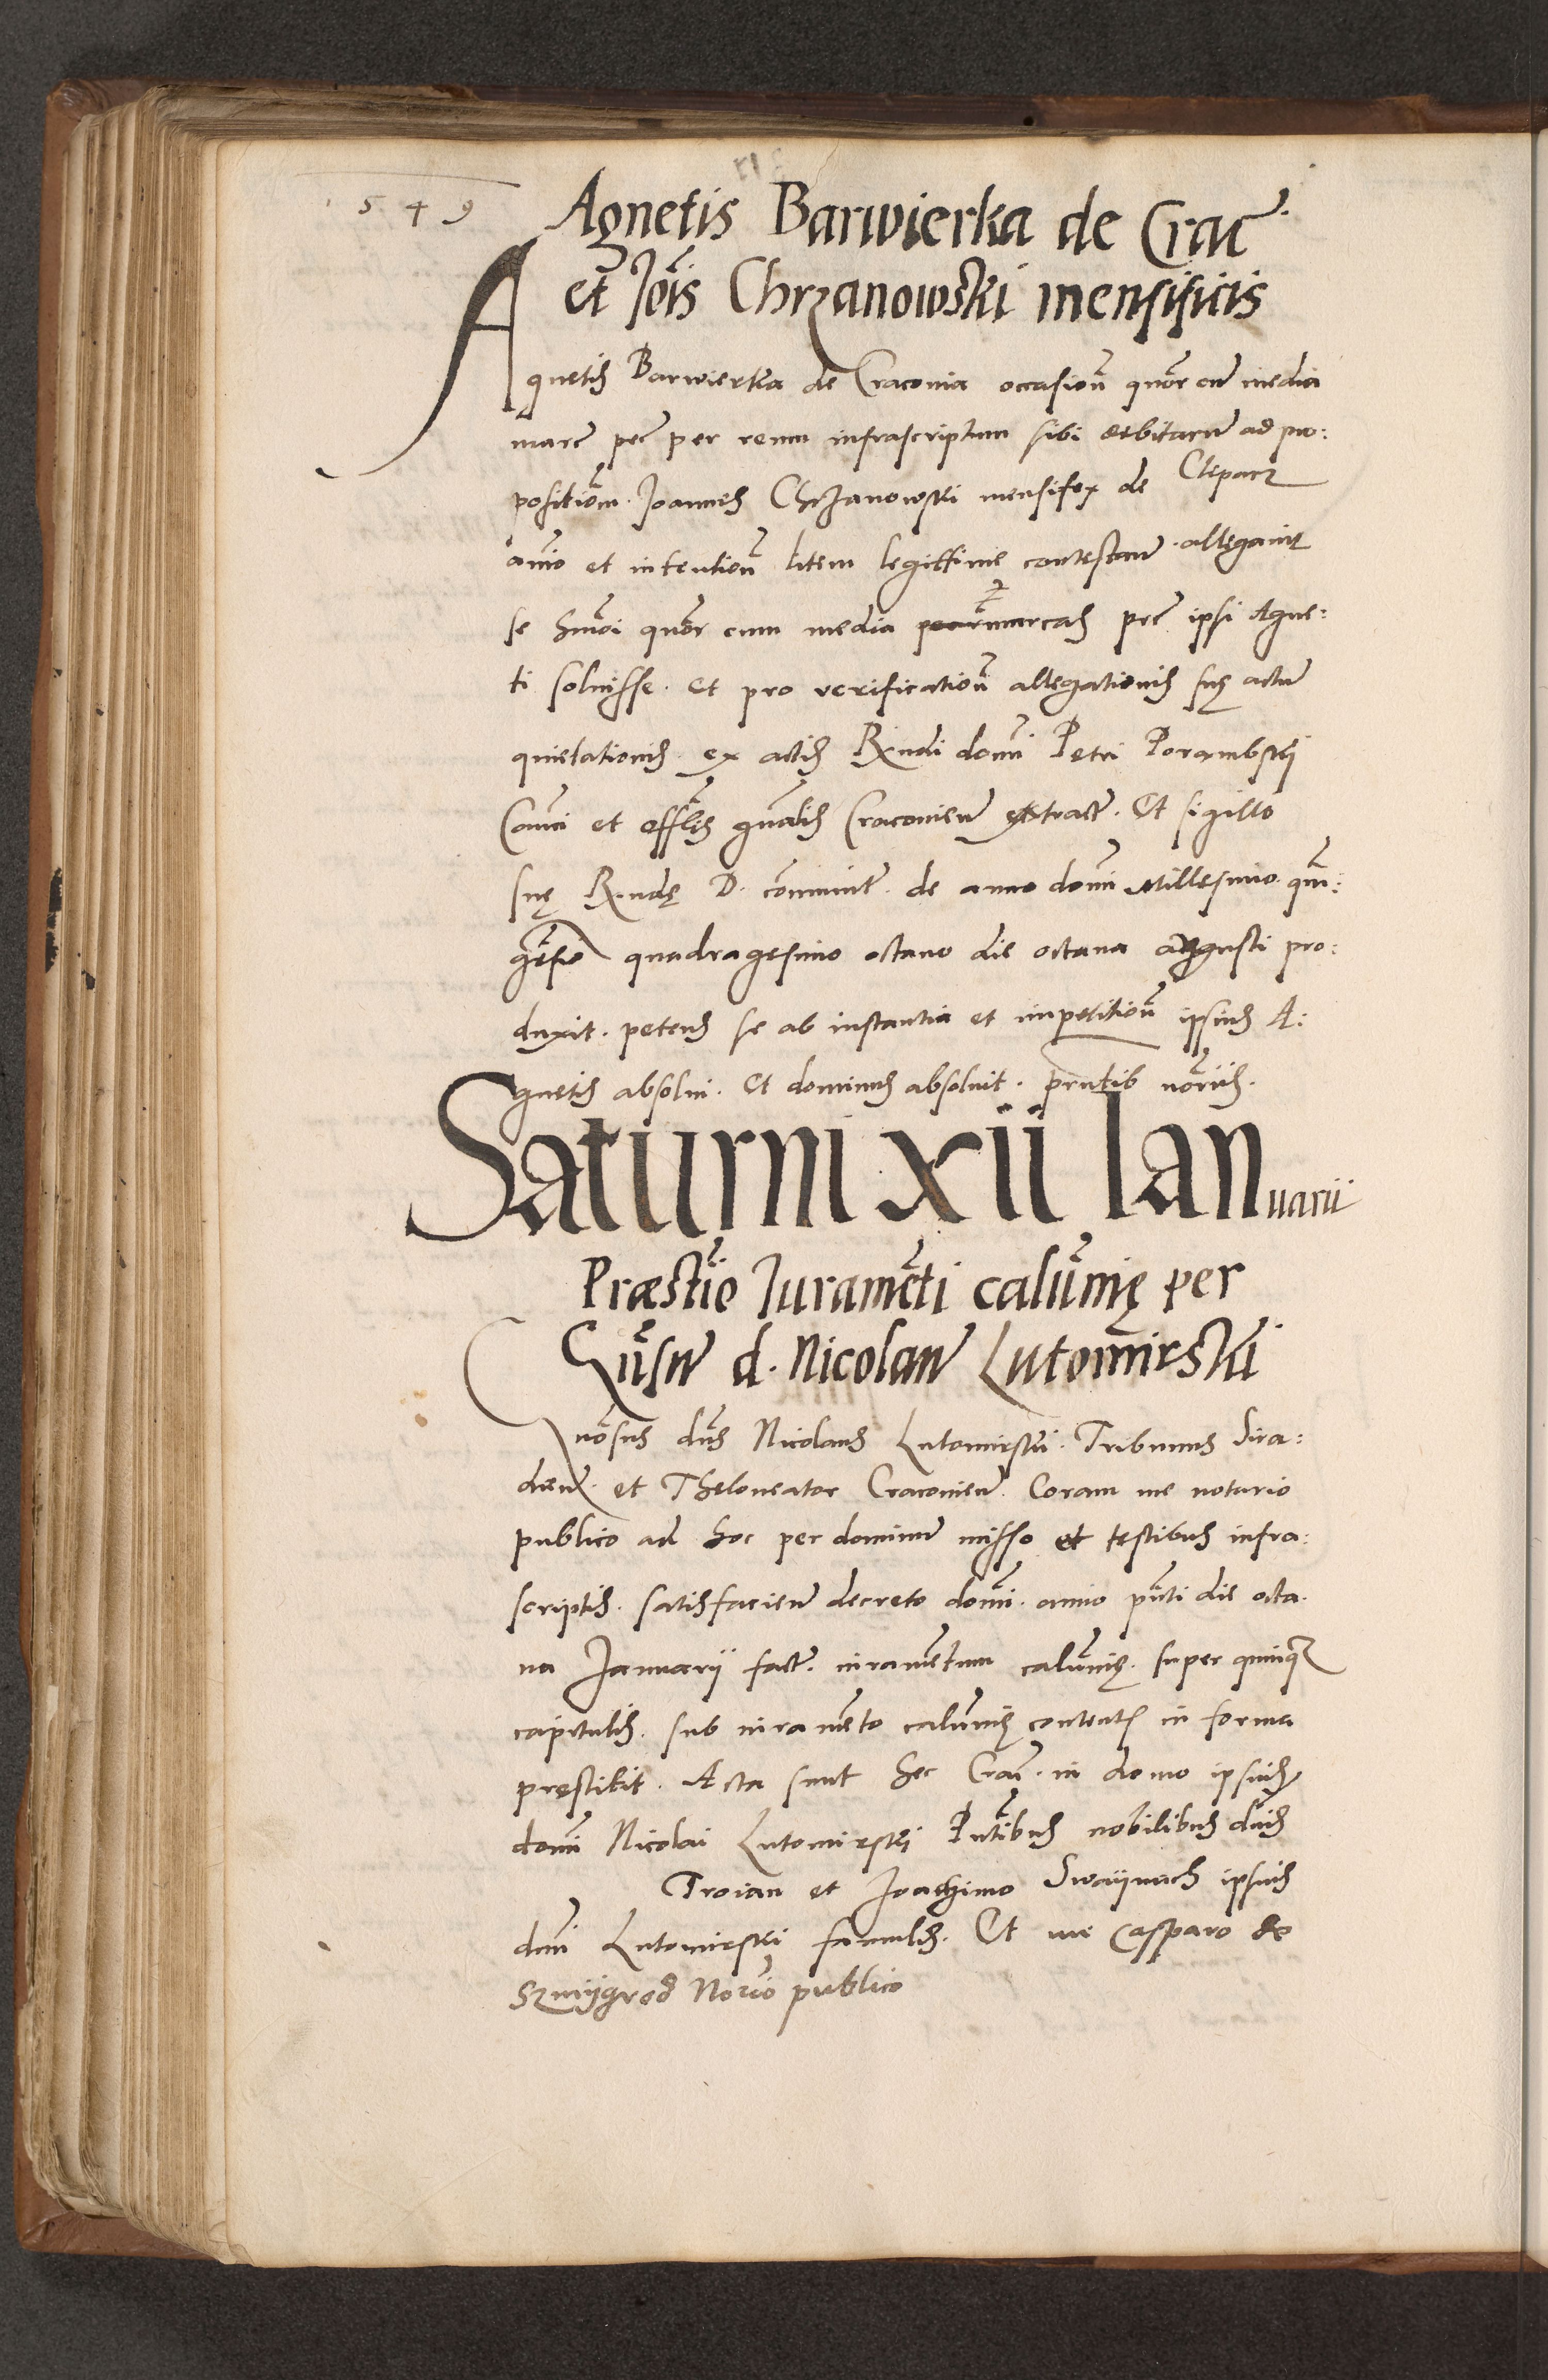 1549
Agnetis Barwierka de Crac
et Jois Chrzanowski mensificis
Agnetis Barwierka de Craconia occasion quor cum media
marc pec per reum infrascriptum sibi debitarum ad pro:
position. Joannes Chrzanowski mensifex de Clepar
animo et intention litem legittime contestan. allegavit
se hmoi quor cum media marcas pec ipsi Agne:
ti solvisse. et pro verification allegationis suę actum
quietationis ex actis Rndi domi Petri Porambskij
Canci et offlis gnalis Craconien extract. Et sigillo
suę Rndę D. communit. de anno domi Millesimo quin:
gesio quadragesimo octavo die octava Augusti pro:
duxit. petens se ab instantia et impetition ipsius A:
gnetis absolvi. Et dominus absolvit. pntib noriis.
Saturni xii Ianuarii
Præstio Iuramenti calumnię per
Gnsum d. Nicolaum Lutomirski
Gnosus dns Nicolaus Lutomirski. Tribunus Sira:
dien. et Theloneator Craconien. Coram me notario
publico ad hoc per dominum misso et testibus infra:
scriptis. satisfacien decreto domi. anno pnti die octa
va Januarij fact. iuramentum calumnię. super quinq
capitulis. sub iuramento calumnię content in forma
prestitit. Acta sunt hec Crac. in domo ipsius
domi Nicolai Lutomirskij Pntibus nobilibus dnis
Troian et Joachimo Swaijnach ipsius
dni Lutomirski famulis. Et me Casparo de
Szmijgrod Norio publico